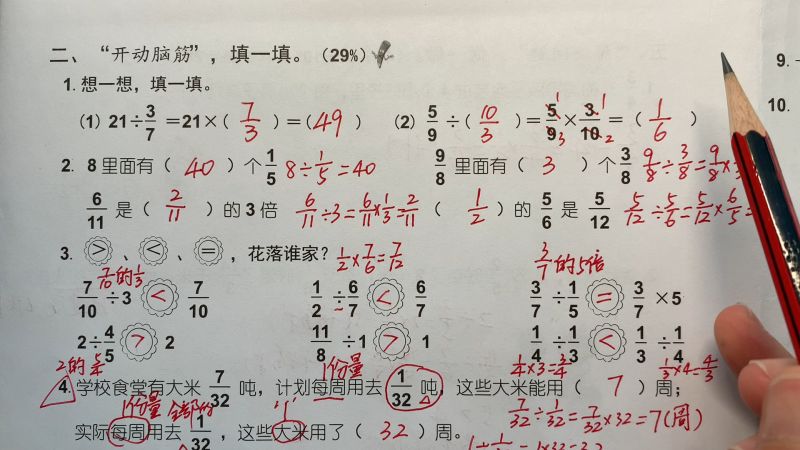 二、“开动脑筋”，填一填。（29%）
9.
1. 想一想，填一填。
10.
(1) 21÷3/7=21×（7/3）=（49） (2) 5/9÷（10/3）=5/9×3/10=（1/6）
2. 8里面有（40）个1/5 8÷1/5=40 9/8里面有（3）个3/8 9/8÷3/8=9/8×
6/11是（2/11）的3倍 6/11÷3=6/11×1/3=2/11 （1/2）的5/6是5/12 5/12÷5/6=5/12×6/5=
3. >、<、=，花落谁家？ 1/2×7/6=7/12 3/7的5倍
7/10的1/3
7/10÷3<7/10 1/2÷6/7<6/7 3/7÷1/5=3/7×5
2÷4/5>2 11/8÷1>1 1/4÷1/3<1/3÷1/4
2的5/4 1份量 1/4×3=3/4 1/3×4=4/3
4. 学校食堂有大米7/32吨，计划每周用去1/32吨，这些大米能用（7）周；
1份量 全部的 “1” 7/32÷1/32=7/32×32=7(周)
实际每周用去1/32，这些大米用了（32）周。